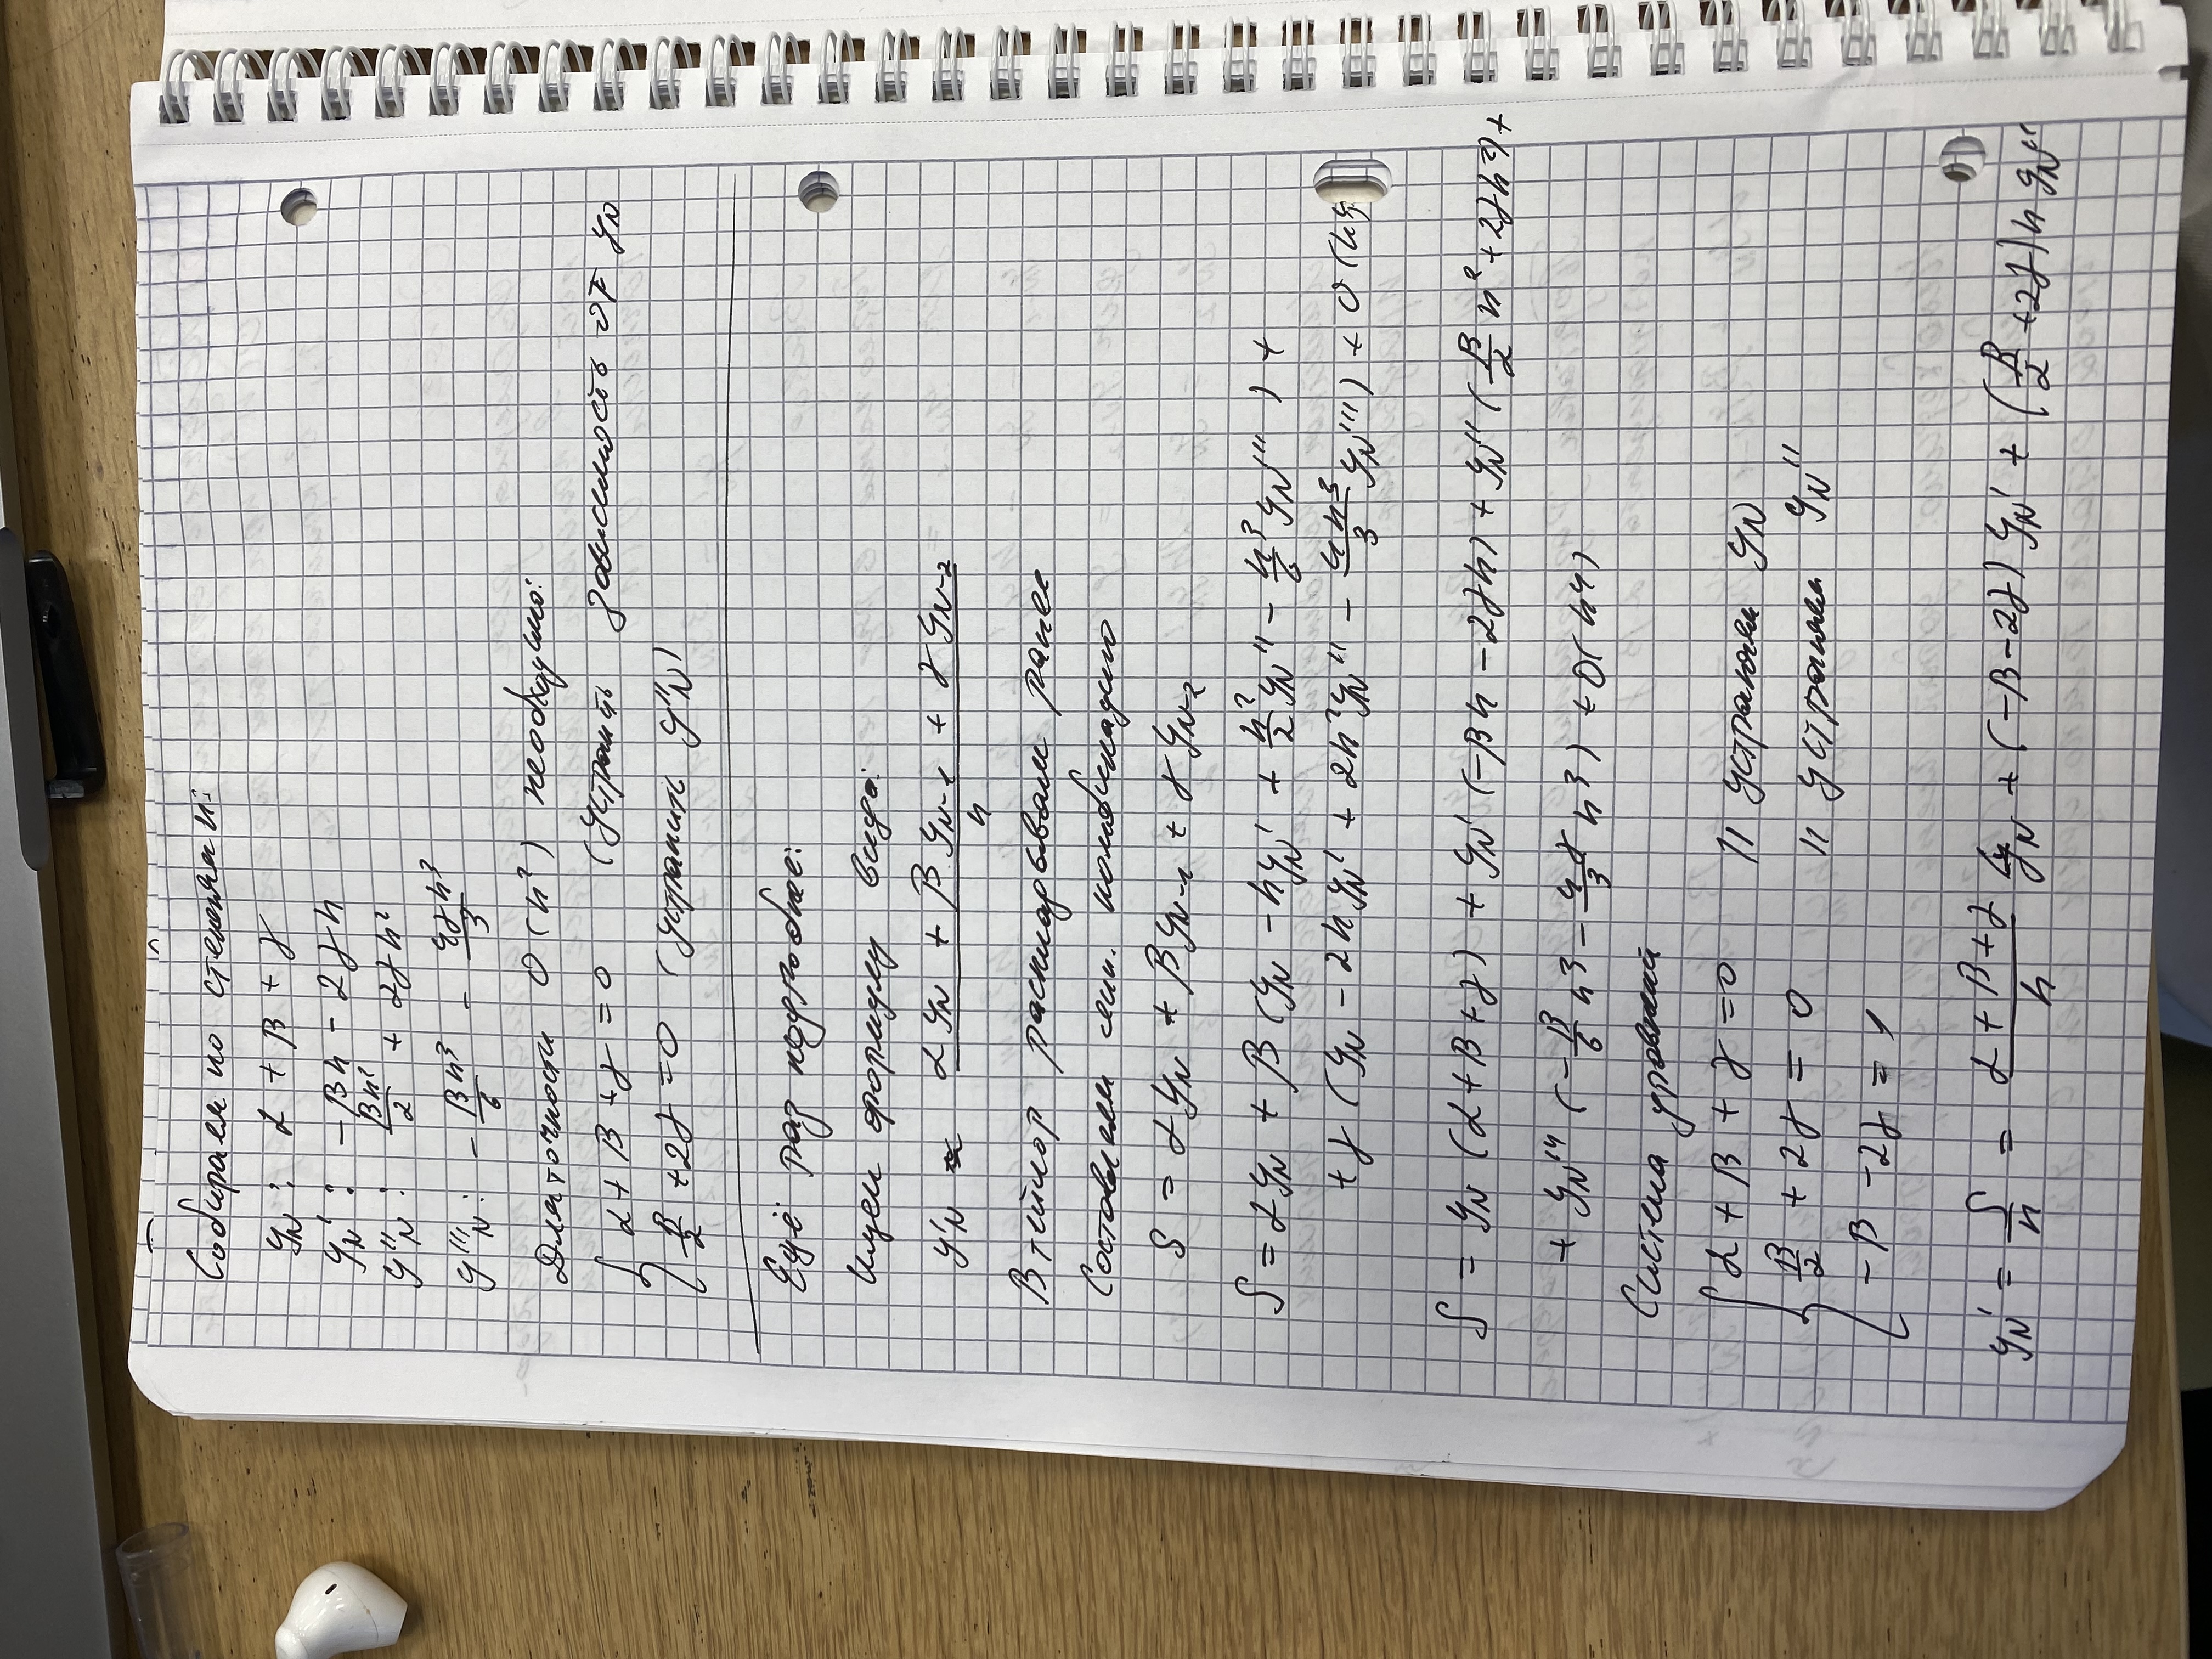 Собираем по степеням h:
y_N : α + β + γ
y'_N : -βh - 2γh
y''_N : βh²/2 + 2γh²
y'''_N : - βh³/6 - 4γh³/3
Для точности O(h²) необходимо:
{ α + β + γ = 0 (устранить зависимость от y_N
β/2 + 2γ = 0 (устранить y''_N)
Ещё раз подробнее:
Ищем формулу вида:
y'_N ≈ (αy_N + βy_{N-1} + γy_{N-2})/h
В тейлор раскладывали ранее
Составляем лин. комбинацию
S = αy_N + βy_{N-1} + γy_{N-2}
S = αy_N + β(y_N - hy_N' + h²/2 y_N'' - h³/6 y_N''') +
+ γ(y_N - 2hy_N' + 2h²y_N'' - 4h³/3 y_N''') + O(h⁴)
S = y_N (α+β+γ) + y_N' (-βh - 2γh) + y_N'' (β/2 h² + 2γh²) +
+ y_N''' (-β/6 h³ - 4γ/3 h³) + O(h⁴)
Система уравнений
{ α + β + γ = 0 // устраняем y_N
β/2 + 2γ = 0 // устраняем y_N''
-β - 2γ = 1
y_N' = S/h = (α + β + γ)/h y_N + (-β - 2γ) y_N' + (β/2 + 2γ) h y_N''